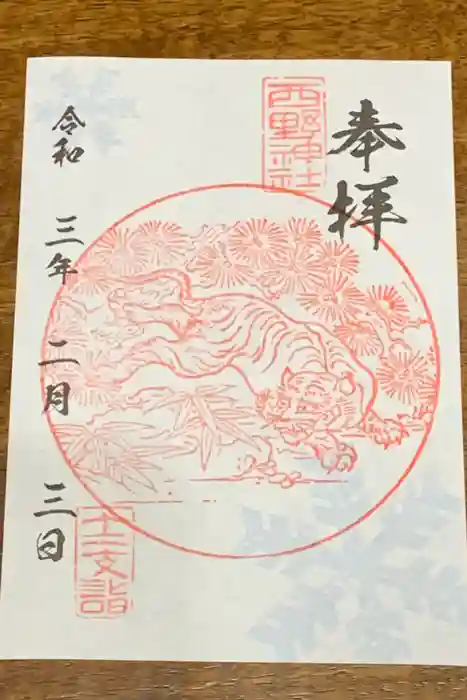 奉拝
西野神社
十二支詣
令和三年二月三日